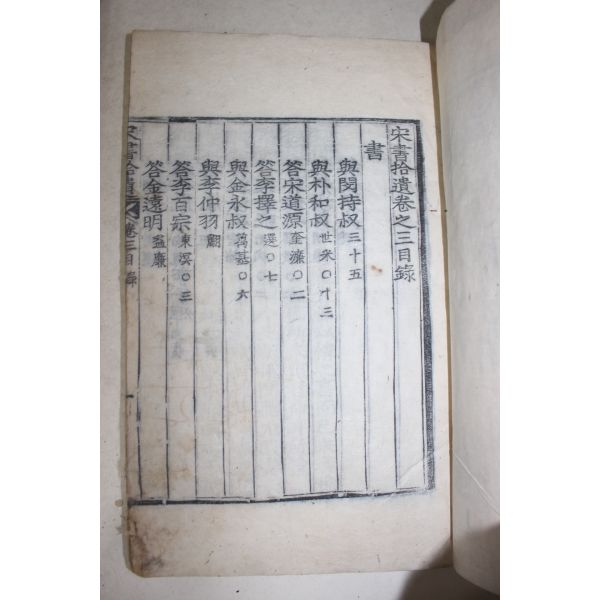 宋書拾遺卷之三目錄
書
與閔持叔 三十五
與朴和叔 世采○十三
答宋道源 奎濂○二
答李擇之 選○七
與金永叔 萬基○六
與李仲羽 翻
答李百宗 東溟○三
答金遠明 益廉
宋書拾遺 卷三目錄 一